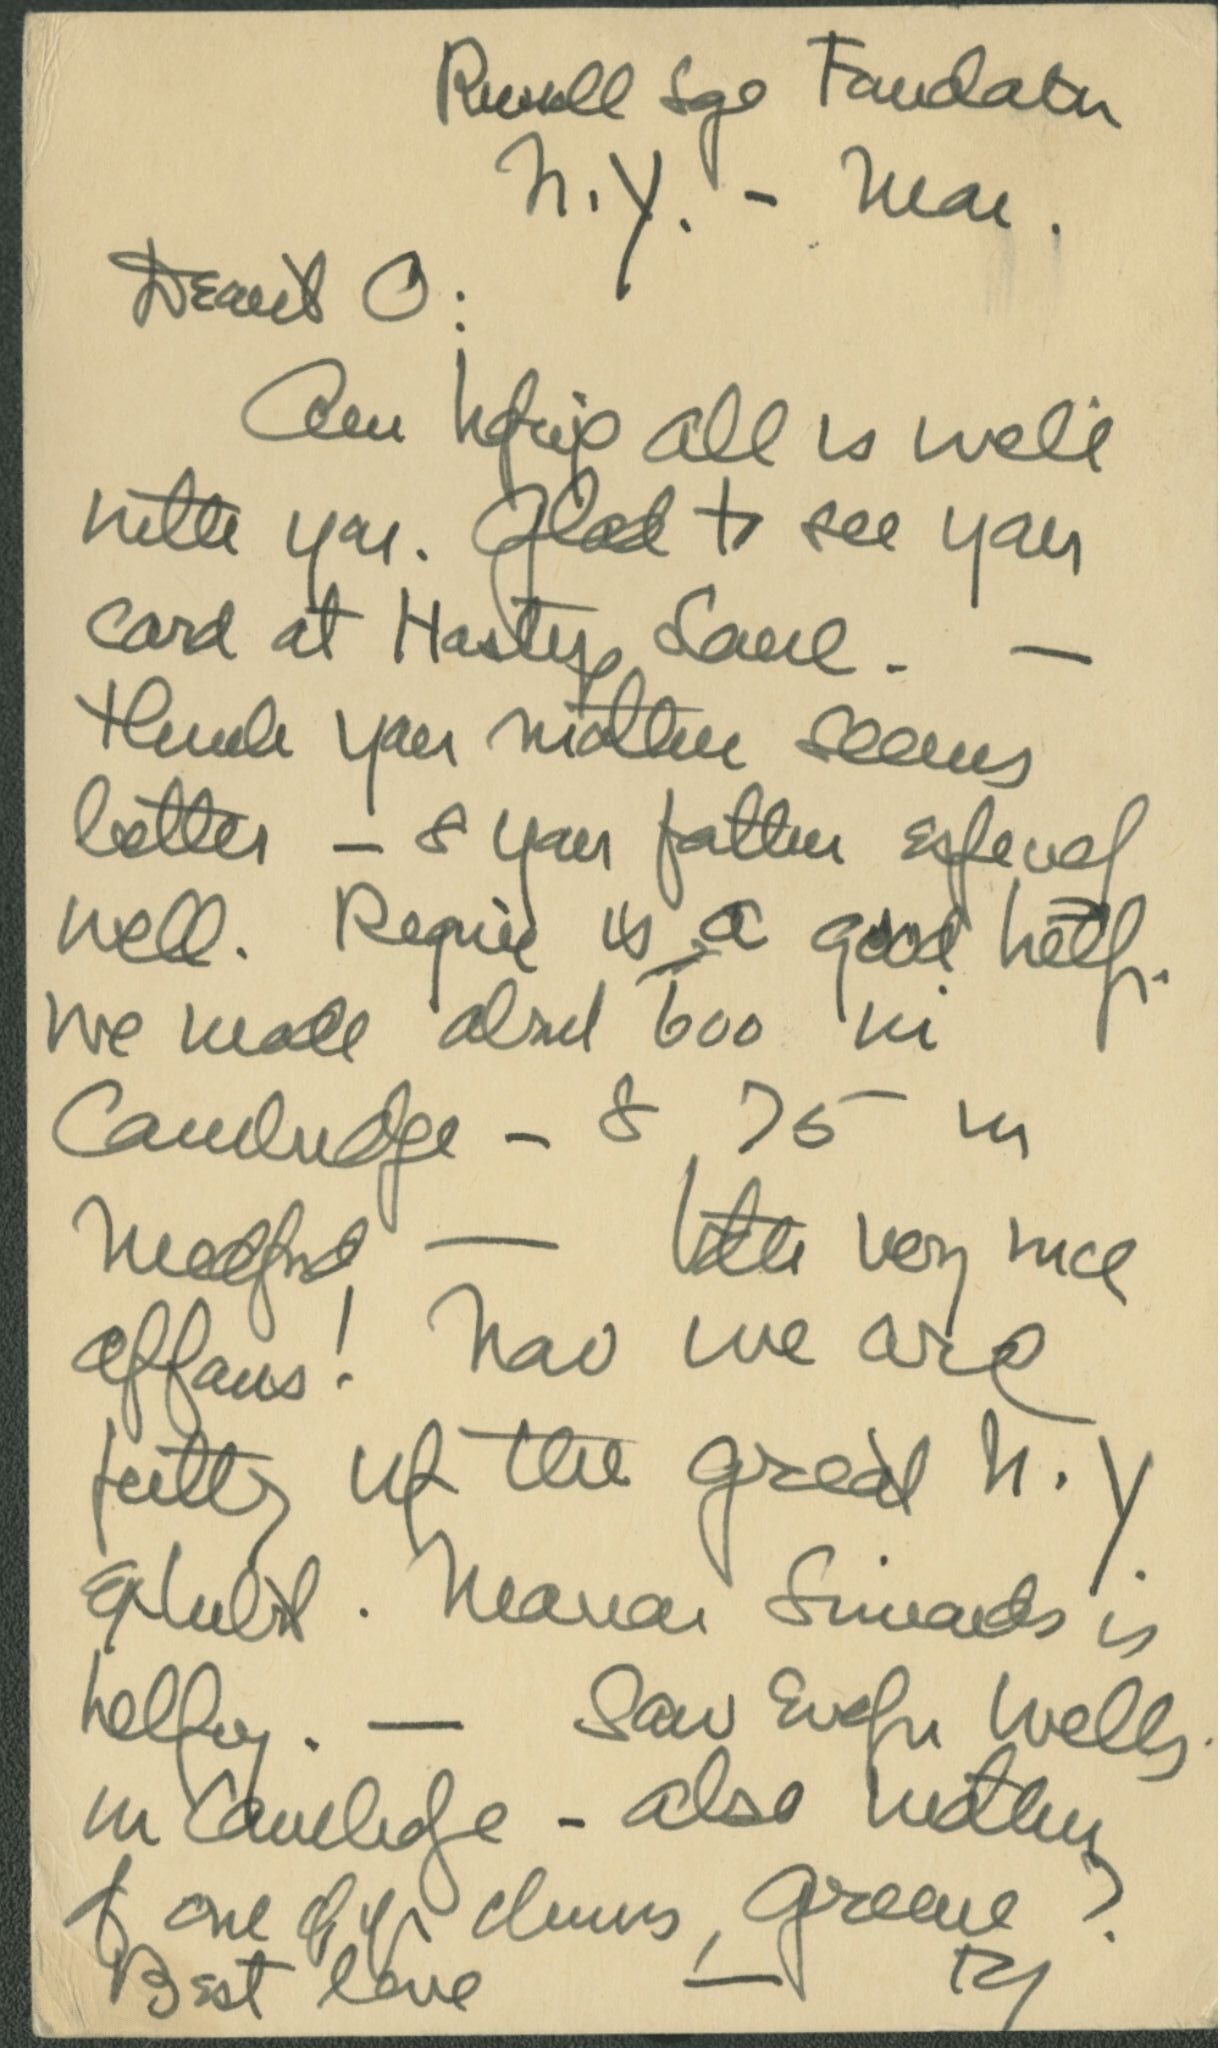 Russell Sage Foundation
N.Y. - Mon.
Dearest O:
Am hoping all is well
with you. Glad to see your
card at Hasty Lane. —
think your mother seems
better - & your father
well. is a good help.
We made about 600 in
Cambridge - & 75 in
Medford — both very nice
affairs! Now we are
putting up the great N.Y.
exhibit. is
helping. — Saw Evelyn Wells
in Cambridge - also mother
of one of yr chums, Greene?
Best love —